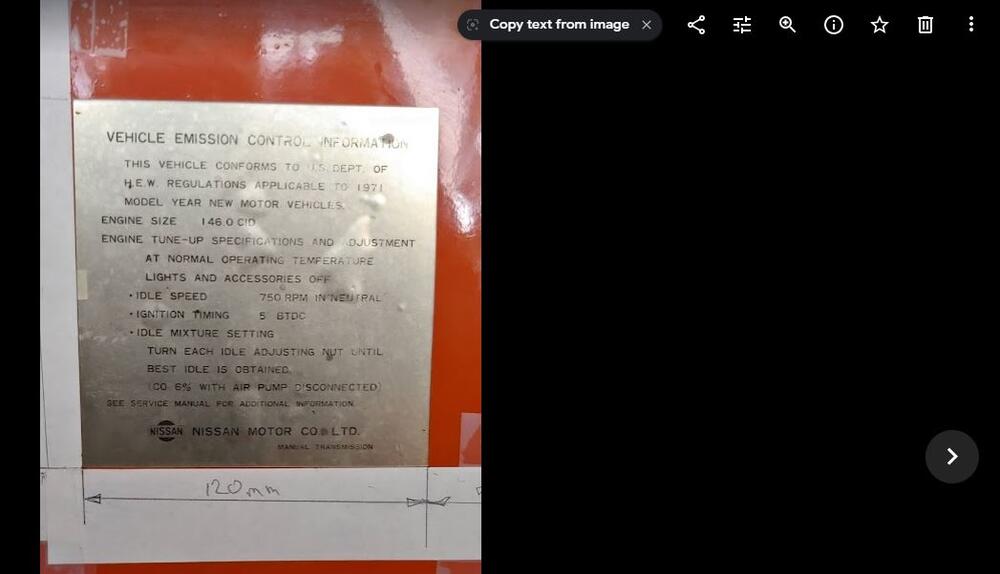 Copy text from image
VEHICLE EMISSION CONTROL INFORMATION
THIS VEHICLE CONFORMS TO U.S. DEPT. OF
H.E.W. REGULATIONS APPLICABLE TO 1971
MODEL YEAR NEW MOTOR VEHICLES.
ENGINE SIZE 146.0 CID
ENGINE TUNE-UP SPECIFICATIONS AND ADJUSTMENT
AT NORMAL OPERATING TEMPERATURE
LIGHTS AND ACCESSORIES OFF
•IDLE SPEED 750 RPM IN NEUTRAL
•IGNITION TIMING 5° BTDC
•IDLE MIXTURE SETTING
TURN EACH IDLE ADJUSTING NUT UNTIL
BEST IDLE IS OBTAINED.
(CO 6% WITH AIR PUMP DISCONNECTED)
SEE SERVICE MANUAL FOR ADDITIONAL INFORMATION.
NISSAN NISSAN MOTOR CO., LTD.
MANUAL TRANSMISSION
120mm